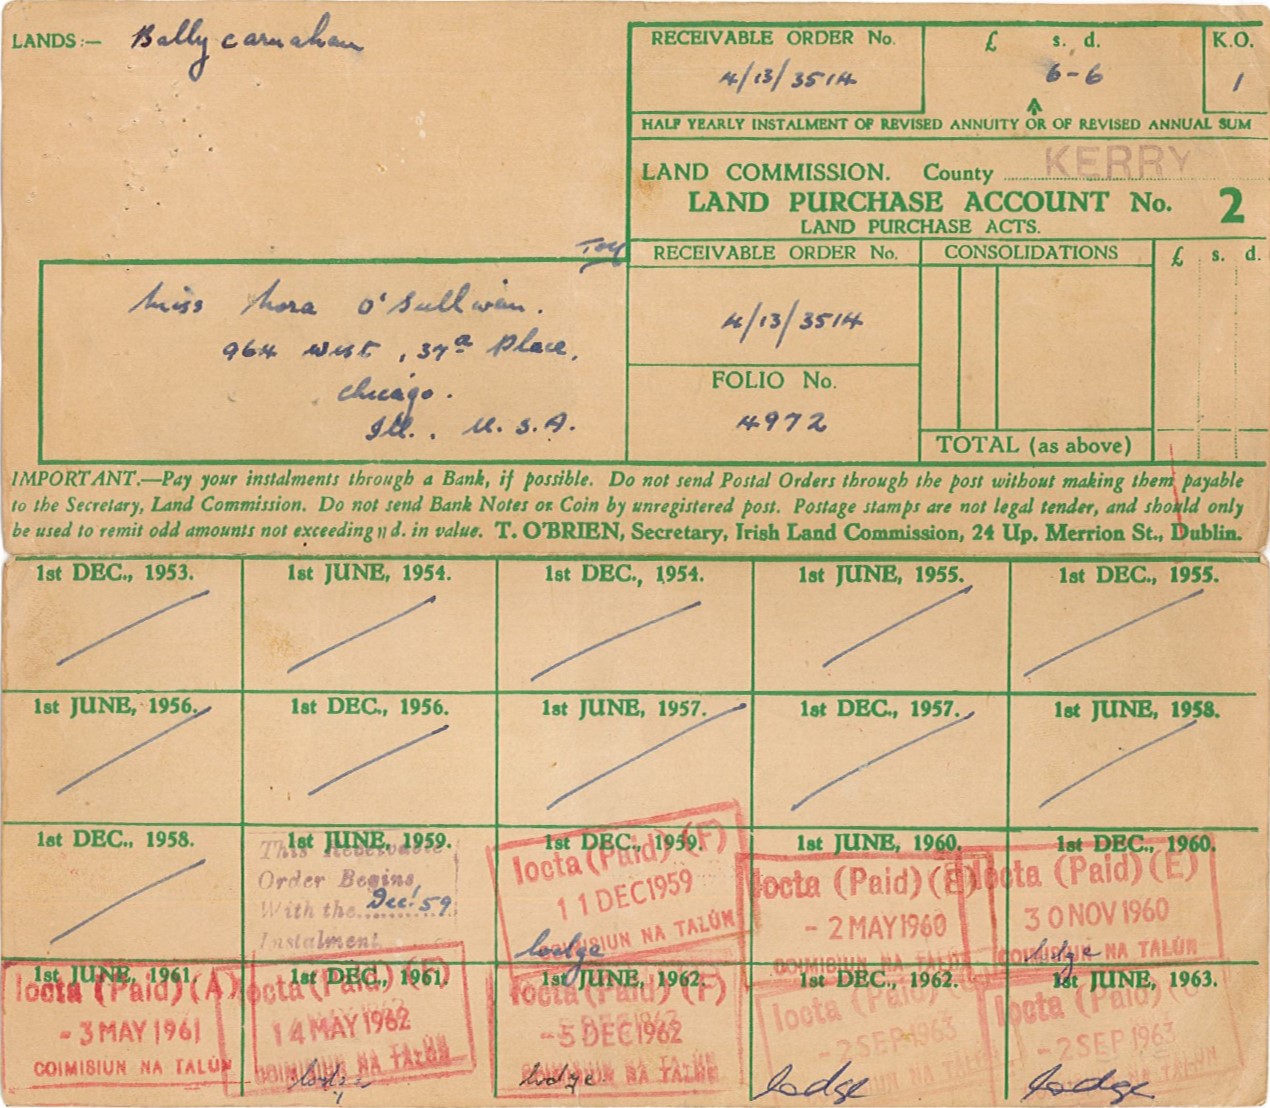 LANDS :— Bally carnahan
RECEIVABLE ORDER No.
4/13/3514
£ s. d.
6-6
K.O.
1
HALF YEARLY INSTALMENT OF REVISED ANNUITY OR OF REVISED ANNUAL SUM
LAND COMMISSION. County KERRY
LAND PURCHASE ACCOUNT No. 2
LAND PURCHASE ACTS.
Miss Nora O'Sullivan.
964 West, 37th Place,
Chicago.
Ill., U.S.A.
RECEIVABLE ORDER No.
4/13/3514
FOLIO No.
4972
CONSOLIDATIONS
£ s. d.
TOTAL (as above)
IMPORTANT.—Pay your instalments through a Bank, if possible. Do not send Postal Orders through the post without making them payable
to the Secretary, Land Commission. Do not send Bank Notes or Coin by unregistered post. Postage stamps are not legal tender, and should only
be used to remit odd amounts not exceeding 11d. in value. T. O'BRIEN, Secretary, Irish Land Commission, 24 Up. Merrion St., Dublin.
1st DEC., 1953. 1st JUNE, 1954. 1st DEC., 1954. 1st JUNE, 1955. 1st DEC., 1955.
1st JUNE, 1956. 1st DEC., 1956. 1st JUNE, 1957. 1st DEC., 1957. 1st JUNE, 1958.
1st DEC., 1958. 1st JUNE, 1959. 1st DEC., 1959. 1st JUNE, 1960. 1st DEC., 1960.
This Receivable
Order Begins
With the Dec. '59
Instalment
Iocta (Paid) (F)
11 DEC 1959
COIMISIUN NA TALÚN
lodge
Iocta (Paid) (E)
-2 MAY 1960
COIMISIUN NA TALÚN
Iocta (Paid) (E)
30 NOV 1960
COIMISIUN NA TALÚN
lodge
1st JUNE, 1961. 1st DEC., 1961. 1st JUNE, 1962. 1st DEC., 1962. 1st JUNE, 1963.
Iocta (Paid) (A)
-3 MAY 1961
COIMISIUN NA TALÚN
Iocta (Paid)
14 MAY 1962
COIMISIUN NA TALÚN
Iocta (Paid) (F)
-5 DEC 1962
COIMISIUN NA TALÚN
lodge
Iocta (Paid)
-2 SEP 1963
lodge
Iocta (Paid)
-2 SEP 1963
lodge